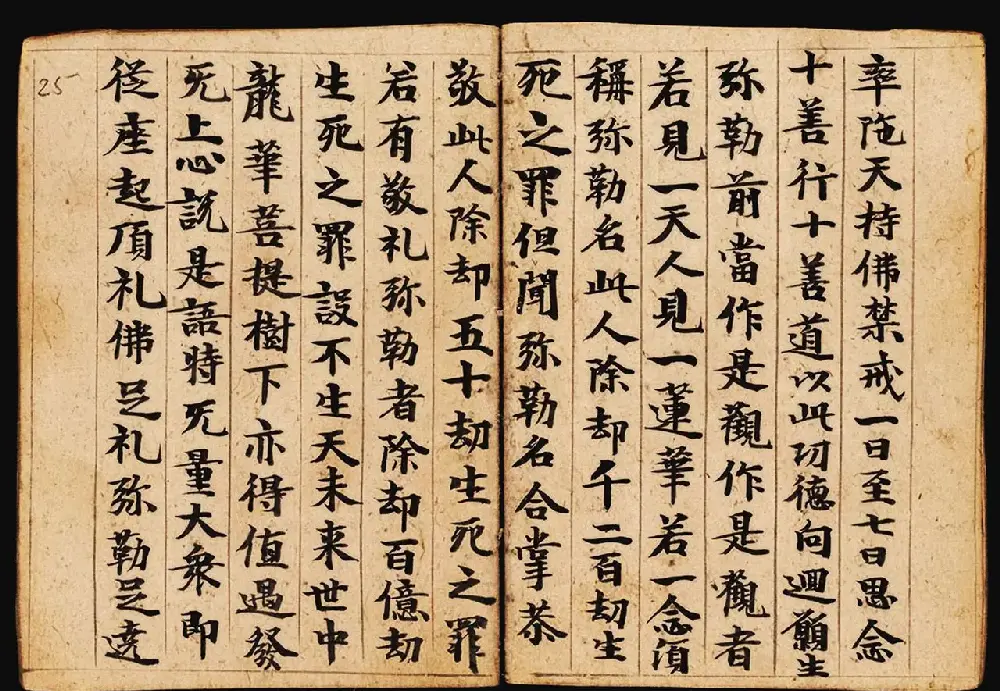 率陁天持佛禁戒一日至七日思念
十善行十善道以此功德向迴願生
弥勒前當作是觀作是觀者
若見一天人見一蓮華若一念湏
稱弥勒名此人除却千二百劫生
死之罪但聞弥勒名合掌恭
敬此人除却五十劫生死之罪
若有敬礼弥勒者除却百億劫
生死之罪設不生天未来世中
龍華菩提樹下亦得值遇發
旡上心説是語時旡量大衆即
從座起頂礼佛足礼弥勒足遶
25